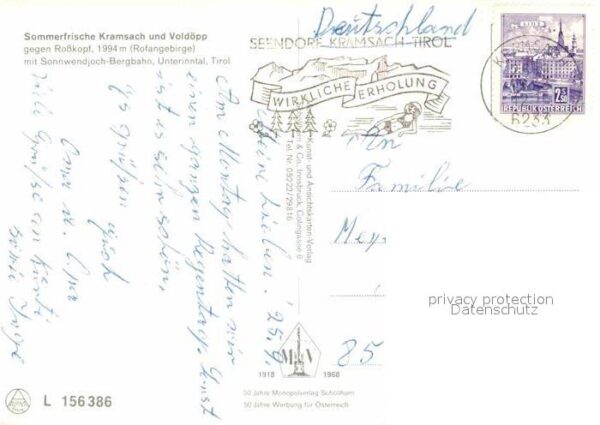 Sommerfrische Kramsach und Voldöpp
gegen Roßkopf, 1994 m (Rofangebirge)
mit Sonnwendjoch-Bergbahn, Unterinntal, Tirol
Deutschland
SEENDORF KRAMSACH TIROL
WIRKLICHE ERHOLUNG
6233
LINZ
2.50
REPUBLIK ÖSTERREICH
25.9.
Meine Lieben!
Am Montag hatten wir
einen ganzen Regentag. Sonst
ist es sehr schön.
Es grüßen euch
Oma u. Opa
Viele Grüße an
An
Familie
Mey
85
privacy protection
Datenschutz
Kunst- und Ansichtskarten-Verlag
& Co., Innsbruck, Colingasse 6
Tel. Nr. 05222/29816
M V
1918 1968
50 Jahre Monopolverlag Schöllhorn
50 Jahre Werbung für Österreich
L 156386